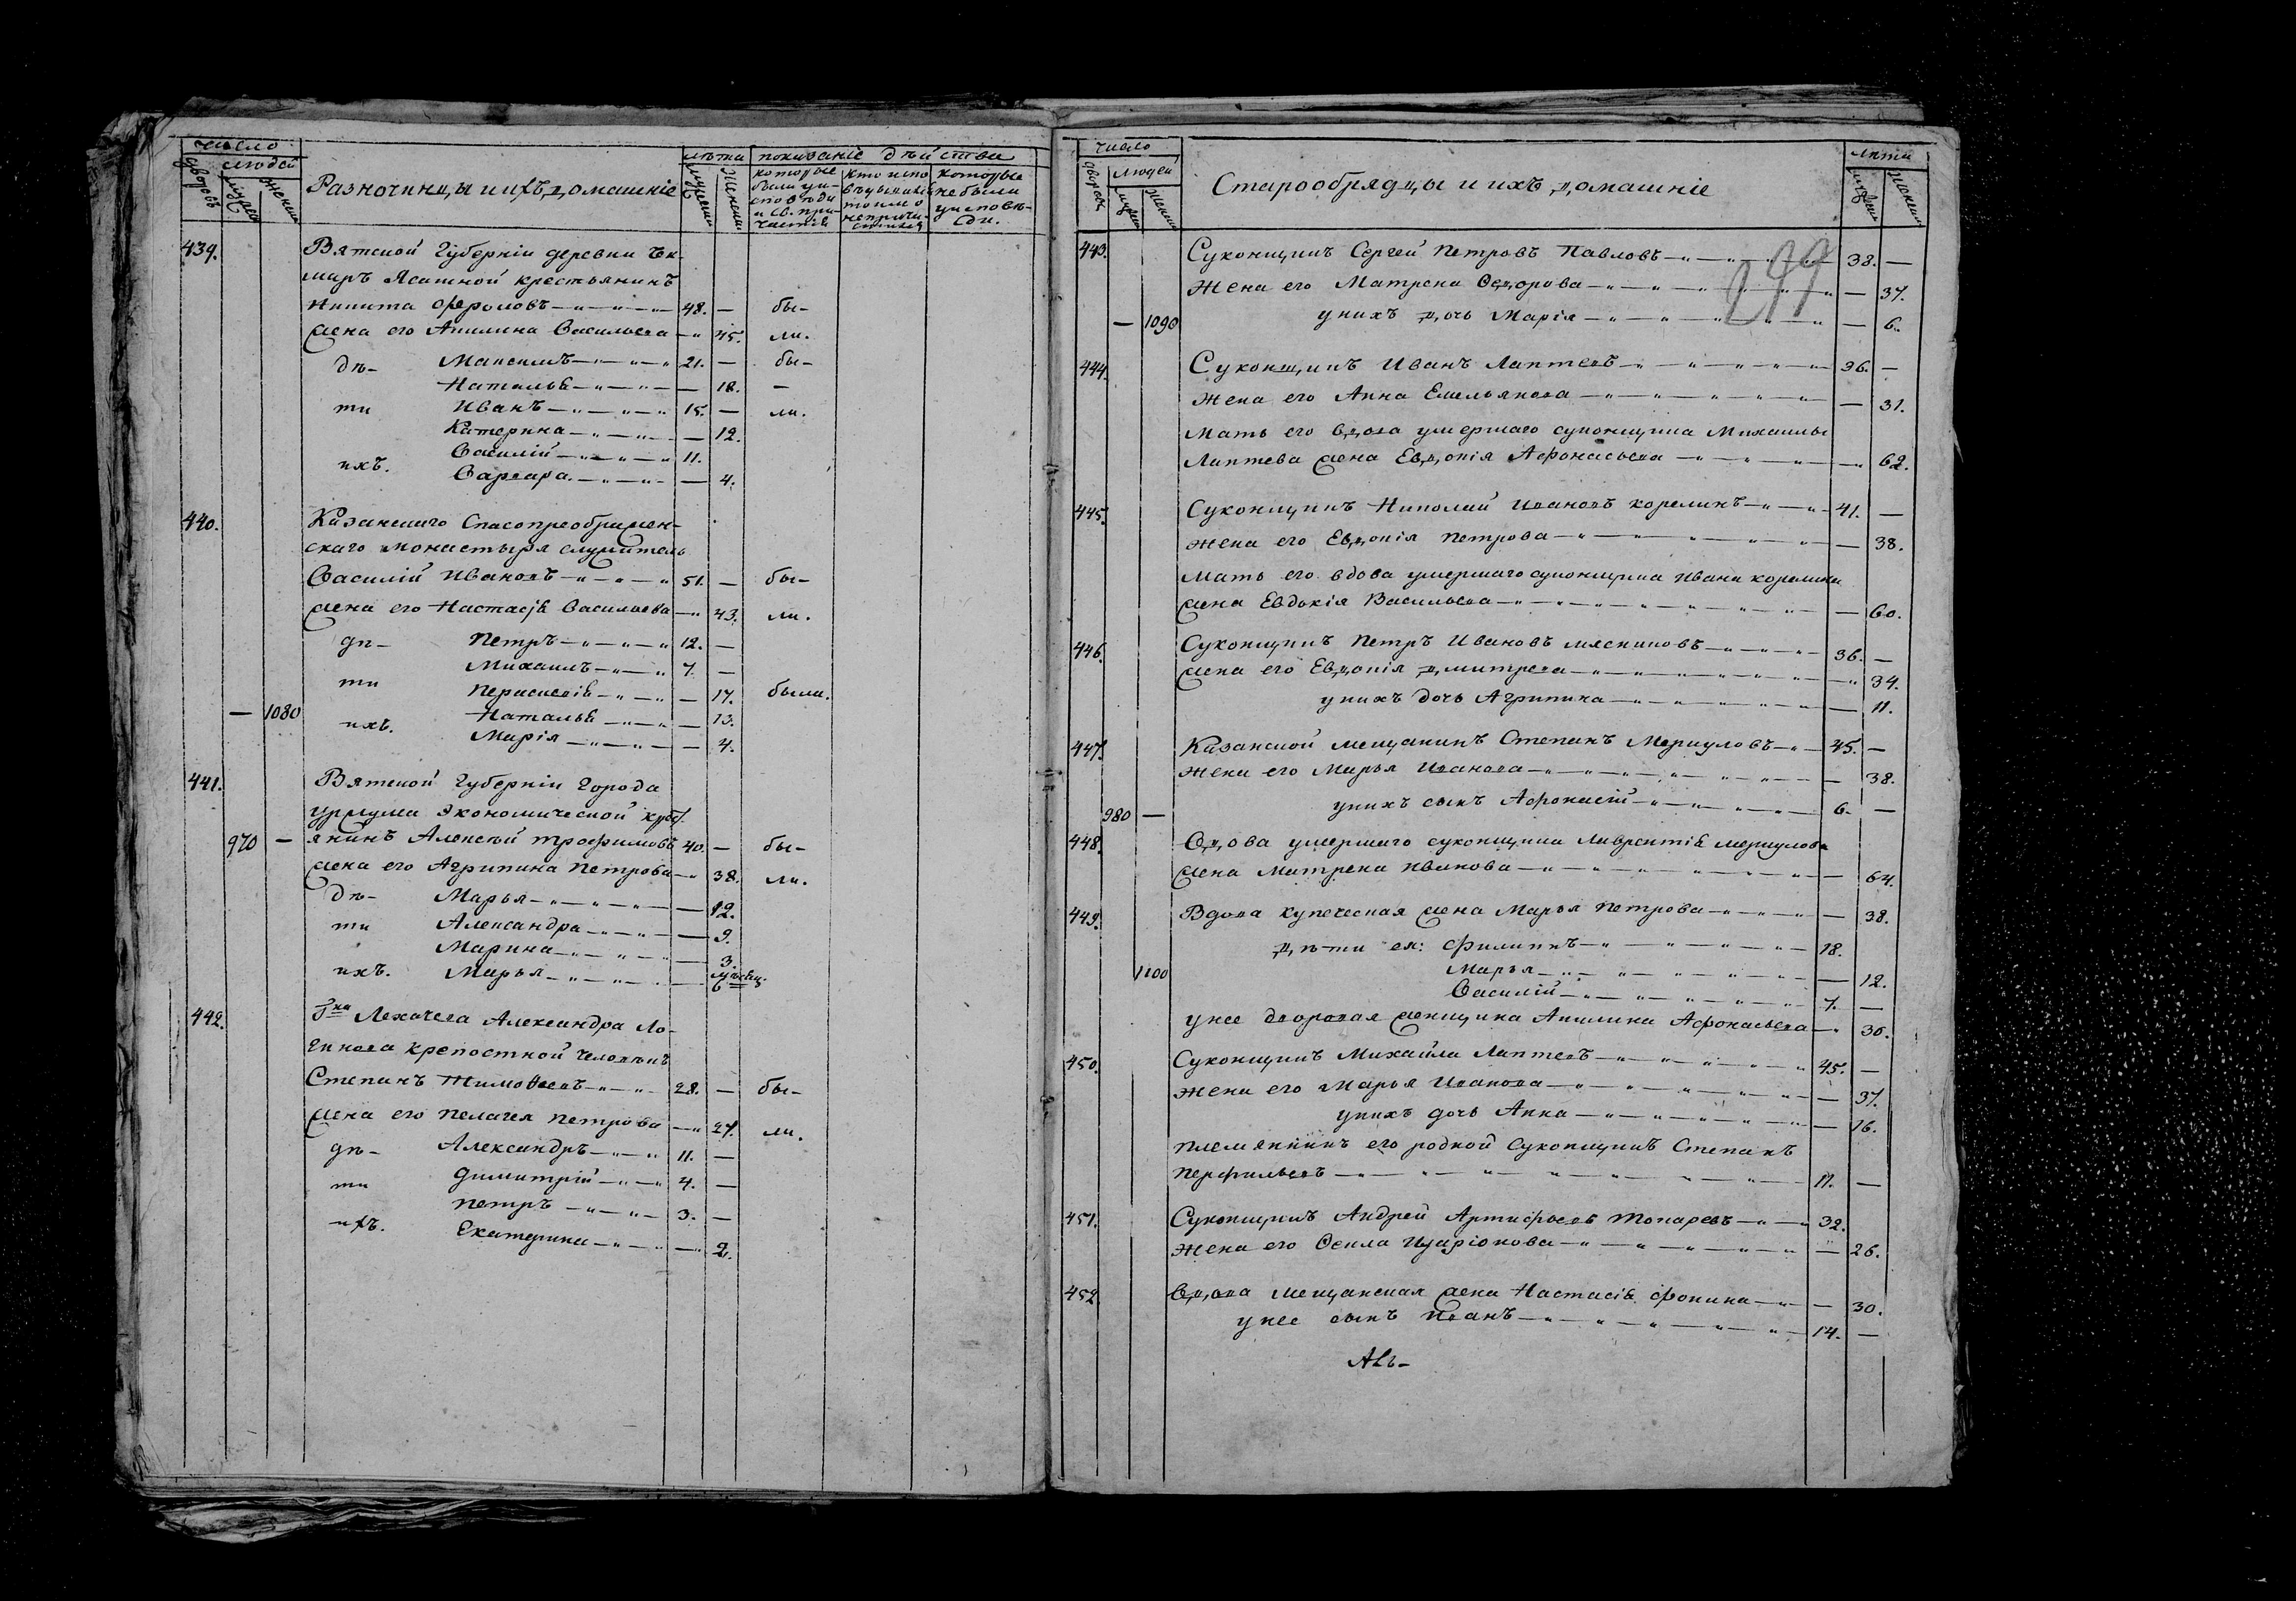 число
людей
дворовъ
мужеск
женск
Разночинцы и ихъ домашніе
лѣта
мужеска
женска
показаніе дѣйства
которые были у исповѣди и св. причастія
которые не были у исповѣди.
439. Вятской Губерніи деревни
Ясашной крестьянинъ
Никита — 48. — бы-
жена его Акилина Васильева — 45. ли.
дѣ- Максимъ — 21. — бы-
Наталья — 18. —
ти Иванъ — 15. — ли.
Катерина — 12.
Василій — 11.
ихъ. Варвара. — 4.
440. Казанскаго Спасопреображен-
скаго монастыря служитель
Василій Ивановъ — 51. — бы-
жена его Настасія Васильева — 43. ли.
дѣ- Петръ — 12. —
Михаилъ — 7. —
ти Параскевія — 17. были.
— 1080 Наталья — 13.
ихъ. Марія — 4.
441. Вятской Губерніи Города
Уржума Экономической крест
970 — янинъ Алексѣй Трофимовъ 40. — бы-
жена его Агрипина Петрова — 38. ли.
дѣ- Марья — 12.
ти Александра — 9.
Марина — 3.
ихъ. Марья —
442. Г-на Лихачева Александра Ло-
гинова крепостной человѣкъ
Степанъ Тимоѳеевъ — 28. — бы-
жена его Пелагея Петрова — 27. ли.
дѣ- Александръ — 11. —
ти Димитрій — 4. —
Петръ — 3. —
ихъ. Екатерина — 2.
число
людей
дворовъ
мужеск
женск
Старообрядцы и ихъ домашніе
лѣта
мужеска
женска
443. Суконщикъ Сергей Петровъ Павловъ — 38. —
Жена его Матрена Ѳедорова — 37.
— 1090 у нихъ дочь Марія — 6.
444. Суконщикъ Иванъ Лаптевъ — 36. —
жена его Анна Емельянова — 31.
Мать его вдова умершаго суконщика Михаилы
Лаптева жена Евдокія Афонасьева — 62.
445. Суконщикъ Николай Ивановъ Корелинъ — 41. —
жена его Евдокія Петрова — 38.
Мать его вдова умершаго суконщика Ивана Корелина
жена Евдокія Васильева — 60.
446. Суконщикъ Петръ Ивановъ Мясниковъ — 36. —
жена его Евдокія Дмитрева — 34.
у нихъ дочь Агрипина — 11.
447. Казанской мещанинъ Степанъ Меркуловъ — 45. —
Жена его Марья Иванова — 38.
980 — у нихъ сынъ Афонасій — 6. —
448. Вдова умершаго суконщика Лаврентія Меркулова
жена Матрена Иванова — 64.
449. Вдова купеческая жена Марья Петрова — 38.
дѣти ея: Филиппъ — 18.
1100 Марья — 12.
Василій — 7. —
у нее дворовая женщина Акилина Афонасьева — 30.
450. Суконщикъ Михайла Лаптевъ — 45. —
жена его Марья Иванова — 37.
у нихъ дочь Анна — 16.
племянникъ его родной Суконщикъ Степанъ
Перфильевъ — 11. —
451. Суконщикъ Андрей Артифьевъ Токаревъ — 32.
Жена его Ѳекла Иларіонова — 26.
452. Вдова мещанская жена Настасія Фокина — 30.
у нее сынъ Иванъ — 14. —